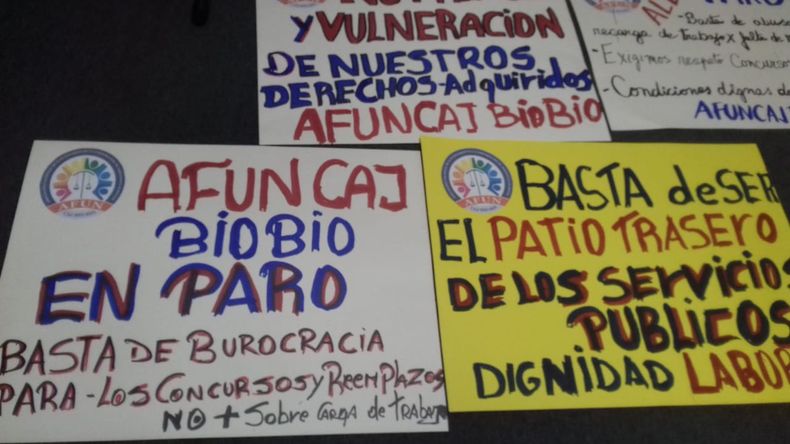 Y VULNERACION
DE NUESTROS
DERECHOS-AdquiRidos
AFUNCAJ BioBio
-Basta de
recarga de Trabajo x falta de
- Exigimos respeto
- Condiciones dignas
AFUNCAJ
AFUN
AFUNCAJ
BIOBIO
EN PARO
BASTA DE BUROCRACIA
PARA - LOS CONCURSOS y ReemPlAZos
NO + Sobre CARGA de TRABAJO
AFUN
BASTA de SER
EL PATIO TRASERO
DE LOS SERVICIOS
PUBLICOS
DIGNIDAD